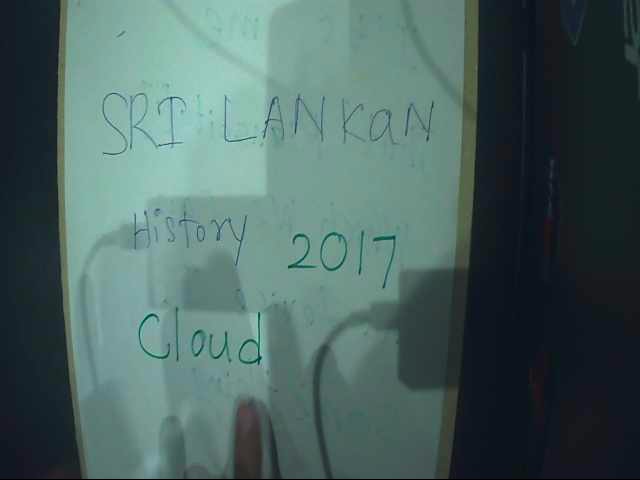 SRI LANKaN
History 2017
Cloud